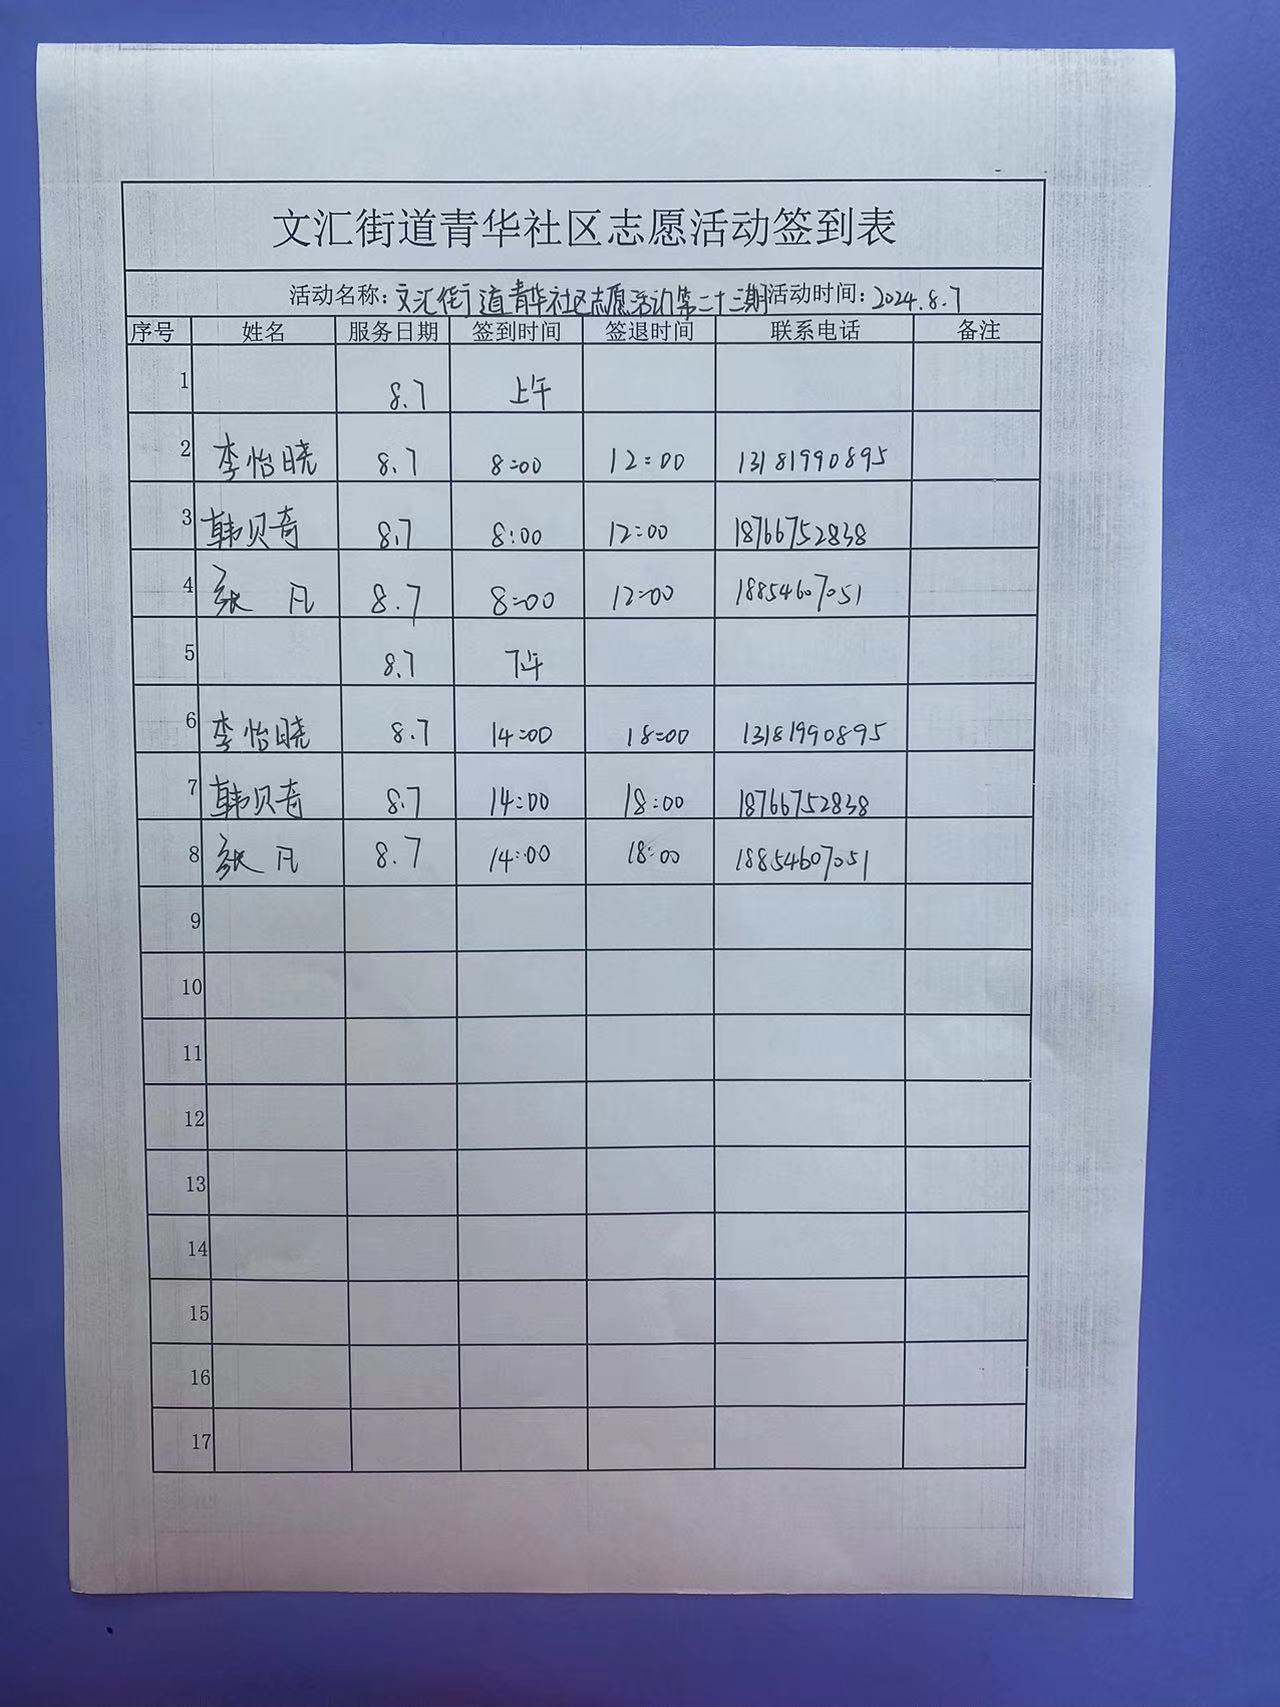 文汇街道青华社区志愿活动签到表
活动名称:文汇街道青华社区志愿活动第二十三期 活动时间:2024.8.7
序号 姓名 服务日期 签到时间 签退时间 联系电话 备注
1 8.7 上午
2 李怡晓 8.7 8:00 12:00 13181990895
3 韩贝奇 8.7 8:00 12:00 18766752838
4 张凡 8.7 8:00 12:00 18854607051
5 8.7 下午
6 李怡晓 8.7 14:00 18:00 13181990895
7 韩贝奇 8.7 14:00 18:00 18766752838
8 张凡 8.7 14:00 18:00 18854607051
9
10
11
12
13
14
15
16
17